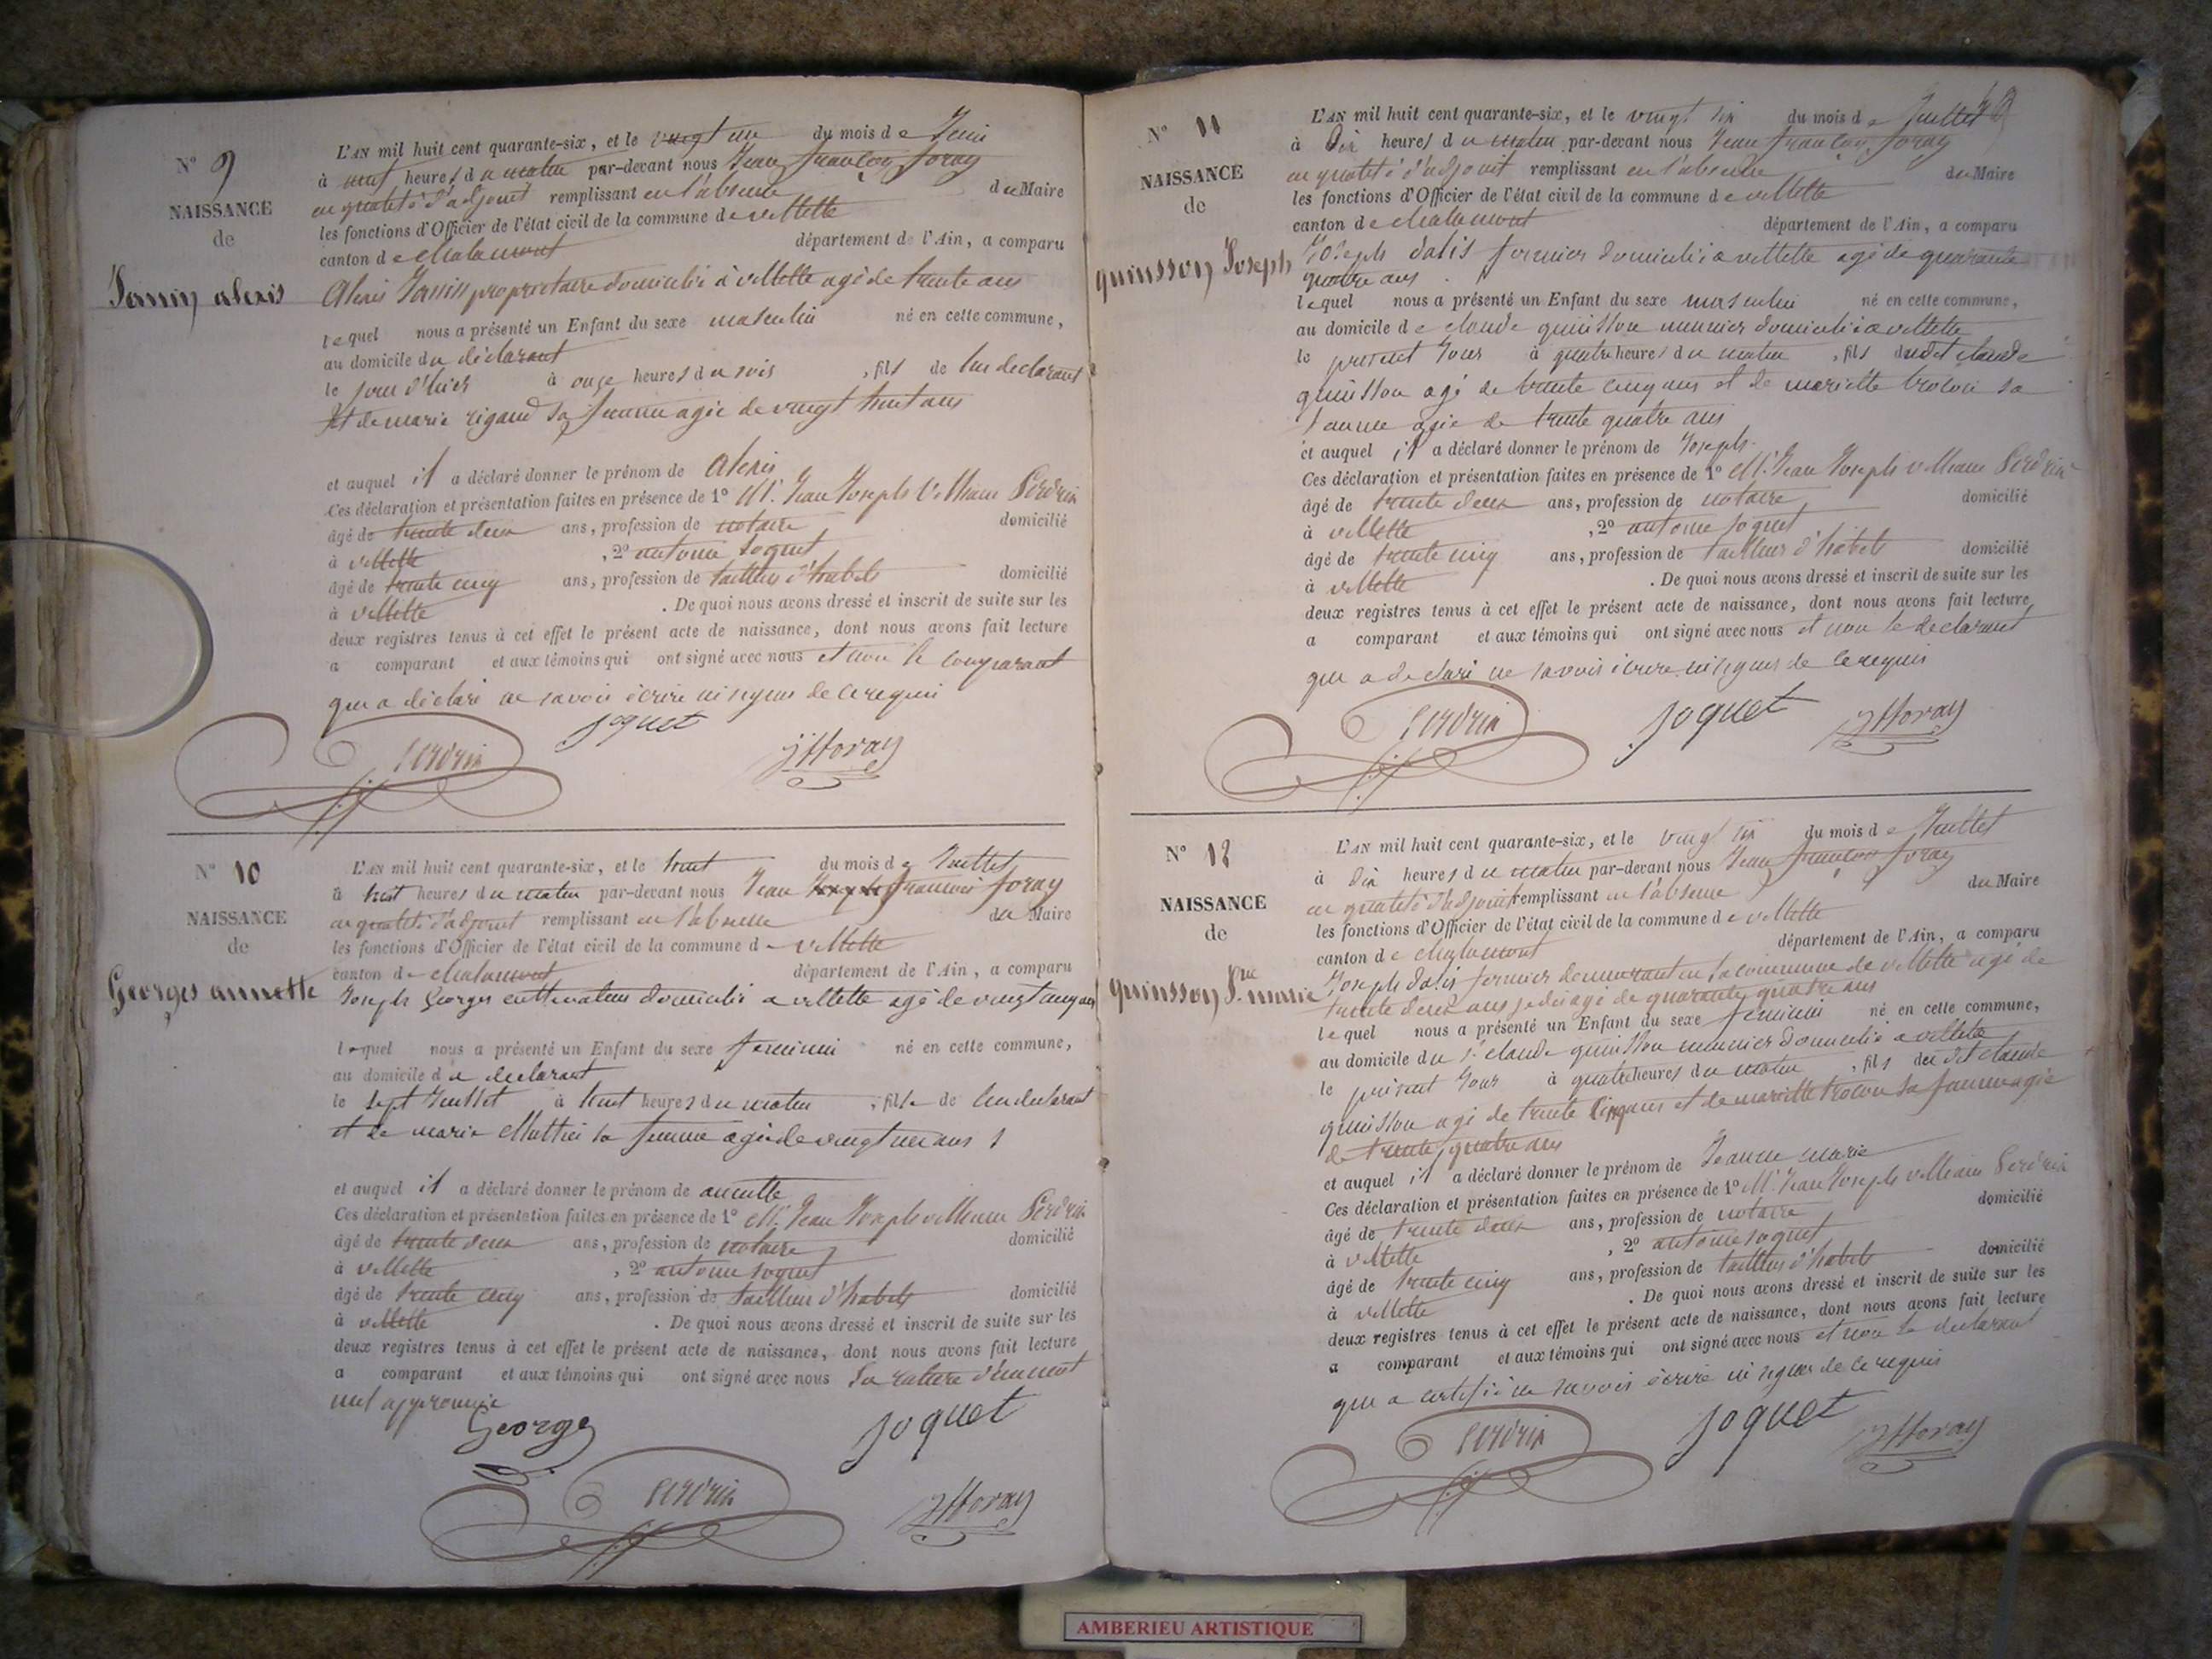 N° 9
NAISSANCE
de
Janin alexis
L'AN mil huit cent quarante-six, et le vingt un du mois de Juin
à neuf heures du matin par-devant nous Jean françois foray
en qualité d'adjoint remplissant en l'absence du Maire
les fonctions d'Officier de l'état civil de la commune de villette
canton de chalamont département de l'Ain, a comparu
Alexis propriétaire domicilié à villette agé de trente ans
lequel nous a présenté un Enfant du sexe masculin né en cette commune,
au domicile du déclarant
le jour d'hier à onze heures du soir, fils de lui declarant
Et de marie rigaud sa femme agée de vingt huit ans
et auquel il a déclaré donner le prénom de alexis
Ces déclaration et présentation faites en présence de 1° Mr. Jean Joseph Perdrix
âgé de trente deux ans, profession de notaire domicilié
à villette, 2° antoine joguet
âgé de trente cinq ans, profession de tailleur d'habits domicilié
à villette. De quoi nous avons dressé et inscrit de suite sur les
deux registres tenus à cet effet le présent acte de naissance, dont nous avons fait lecture
a comparant et aux témoins qui ont signé avec nous et non le comparant
qui a déclaré ne savoir écrire ni signer de ce requis
Perdrix joguet jfforay
N° 10
NAISSANCE
de
Georges annette
L'AN mil huit cent quarante-six, et le huit du mois de Juillet
à huit heures du matin par-devant nous Jean françois foray
en qualité d'adjoint remplissant en l'absence du Maire
les fonctions d'Officier de l'état civil de la commune d villette
canton de chalamont département de l'Ain, a comparu
Joseph Georges cultivateur domicilié a villette agé de vingt cinq ans
lequel nous a présenté un Enfant du sexe feminin né en cette commune,
au domicile du declarant
le sept Juillet à huit heures du matin, fille de lui declarant
et de marie Mathieu sa femme agée de vingt un ans
et auquel il a déclaré donner le prénom de annette
Ces déclaration et présentation faites en présence de 1° Mr. Jean Joseph Perdrix
âgé de trente deux ans, profession de notaire domicilié
à villette, 2° antoine joguet
âgé de trente cinq ans, profession de tailleur d'habits domicilié
à villette. De quoi nous avons dressé et inscrit de suite sur les
deux registres tenus à cet effet le présent acte de naissance, dont nous avons fait lecture
a comparant et aux témoins qui ont signé avec nous la rature d'un mot
nul approuvée
George joguet
Perdrix jfforay
N° 11
NAISSANCE
de
quinsson Joseph
L'AN mil huit cent quarante-six, et le vingt six du mois de Juillet
à dix heures du matin par-devant nous Jean françois foray
en qualité d'adjoint remplissant en l'absence du Maire
les fonctions d'Officier de l'état civil de la commune de villette
canton de chalamont département de l'Ain, a comparu
Joseph fermier domicilié a villette agé de quarante
quatre ans
lequel nous a présenté un Enfant du sexe masculin né en cette commune,
au domicile de claude quinsson meunier domicilié a villette
le présent jour à quatre heures du matin, fils dudit claude
quinsson agé de trente cinq ans et de mariette sa
femme agée de trente quatre ans
et auquel il a déclaré donner le prénom de Joseph
Ces déclaration et présentation faites en présence de 1° Mr. Jean Joseph Perdrix
âgé de trente deux ans, profession de notaire domicilié
à villette, 2° antoine joguet
âgé de trente cinq ans, profession de tailleur d'habits domicilié
à villette. De quoi nous avons dressé et inscrit de suite sur les
deux registres tenus à cet effet le présent acte de naissance, dont nous avons fait lecture
a comparant et aux témoins qui ont signé avec nous et non le declarant
qui a declaré ne savoir écrire ni signer de ce requis
Perdrix joguet jfforay
N° 12
NAISSANCE
de
quinsson Jne marie
L'AN mil huit cent quarante-six, et le vingt six du mois de Juillet
à dix heures du matin par-devant nous Jean françois foray
en qualité d'adjoint remplissant en l'absence du Maire
les fonctions d'Officier de l'état civil de la commune de villette
canton de chalamont département de l'Ain, a comparu
Joseph fermier demeurant en la commune de villette agé de
trente deux ans je dis agé de quarante quatre ans
lequel nous a présenté un Enfant du sexe feminin né en cette commune,
au domicile du sr. claude quinsson meunier domicilié a villette
le présent jour à quatre heures du matin, fils du dit claude
quinsson agé de trente cinq ans et de mariette sa femme agée
de trente quatre ans
et auquel il a déclaré donner le prénom de Jeanne marie
Ces déclaration et présentation faites en présence de 1° Mr. Jean Joseph Perdrix
âgé de trente deux ans, profession de notaire domicilié
à villette, 2° antoine joguet
âgé de trente cinq ans, profession de tailleur d'habits domicilié
à villette. De quoi nous avons dressé et inscrit de suite sur les
deux registres tenus à cet effet le présent acte de naissance, dont nous avons fait lecture
a comparant et aux témoins qui ont signé avec nous et non le declarant
qui a certifié ne savoir écrire ni signer de ce requis
Perdrix joguet jfforay
AMBERIEU ARTISTIQUE